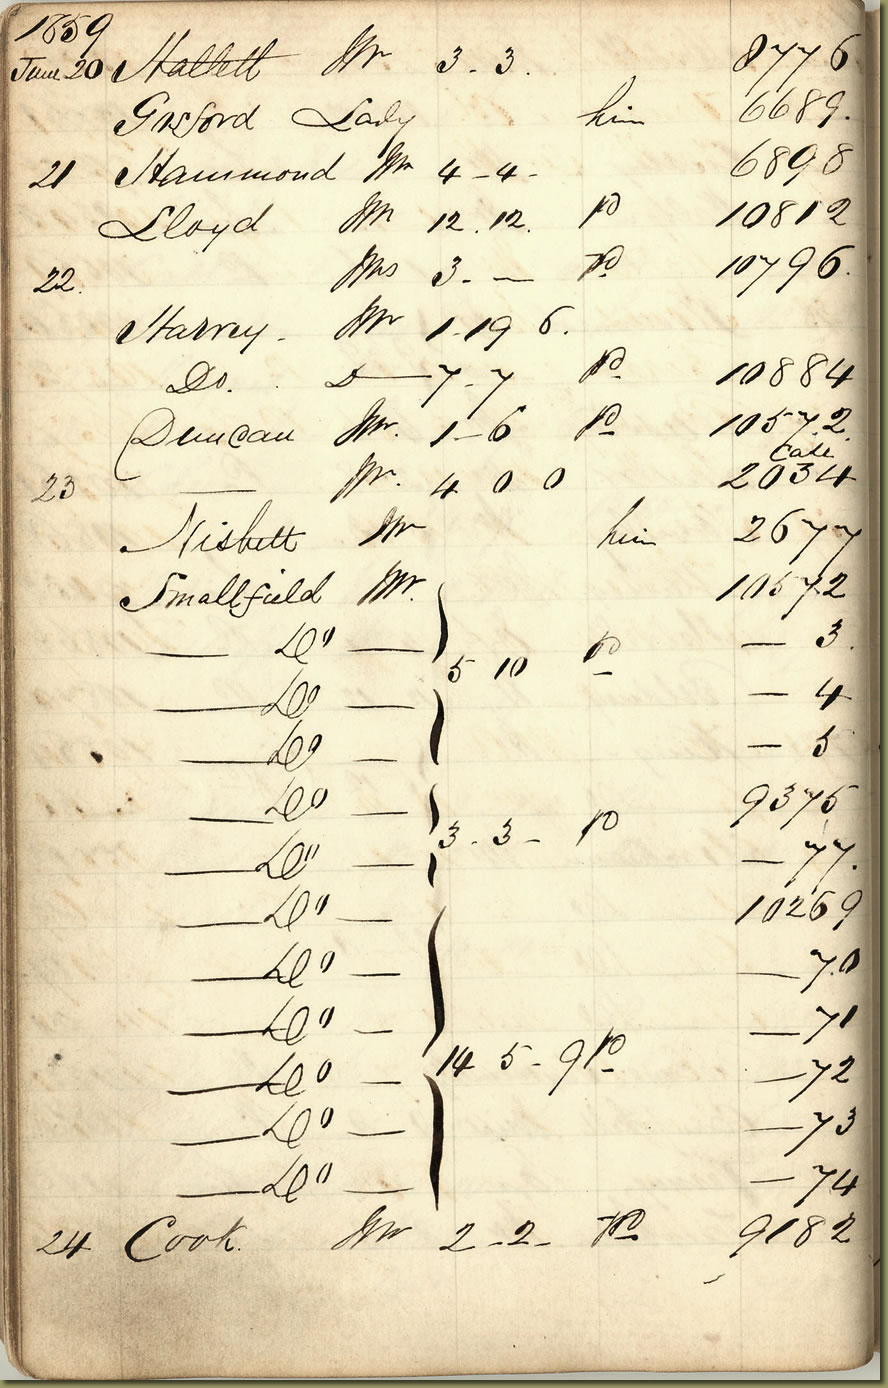 1859
June 20 Hallett Mr 3. 3. 8776
Gifford Lady him 6689.
21 Hammond Mr 4-4- 6898
Lloyd Mr 12.12. Pd 10812
22. Mrs 3. — Pd 10796.
Harvey. Mr 1-19 6.
Do. D— 7-7 Pd 10884
Duncan Mr. 1-6 Pd 10572.
Case
23 — Mr. 4 0 0 2034
Nisbett Mr him 2677
Smallfield Mr. 10572
— Do — — 3.
5 10 Pd
— Do — — 4
— Do — — 5
— Do — 9375
3. 3- Pd
— Do — — 77.
— Do — 10269
— Do — — 70
— Do — — 71
14 5-9 Pd
— Do — — 72
— Do — — 73
— Do — — 74
24 Cook. Mr 2-2- Pd 9182